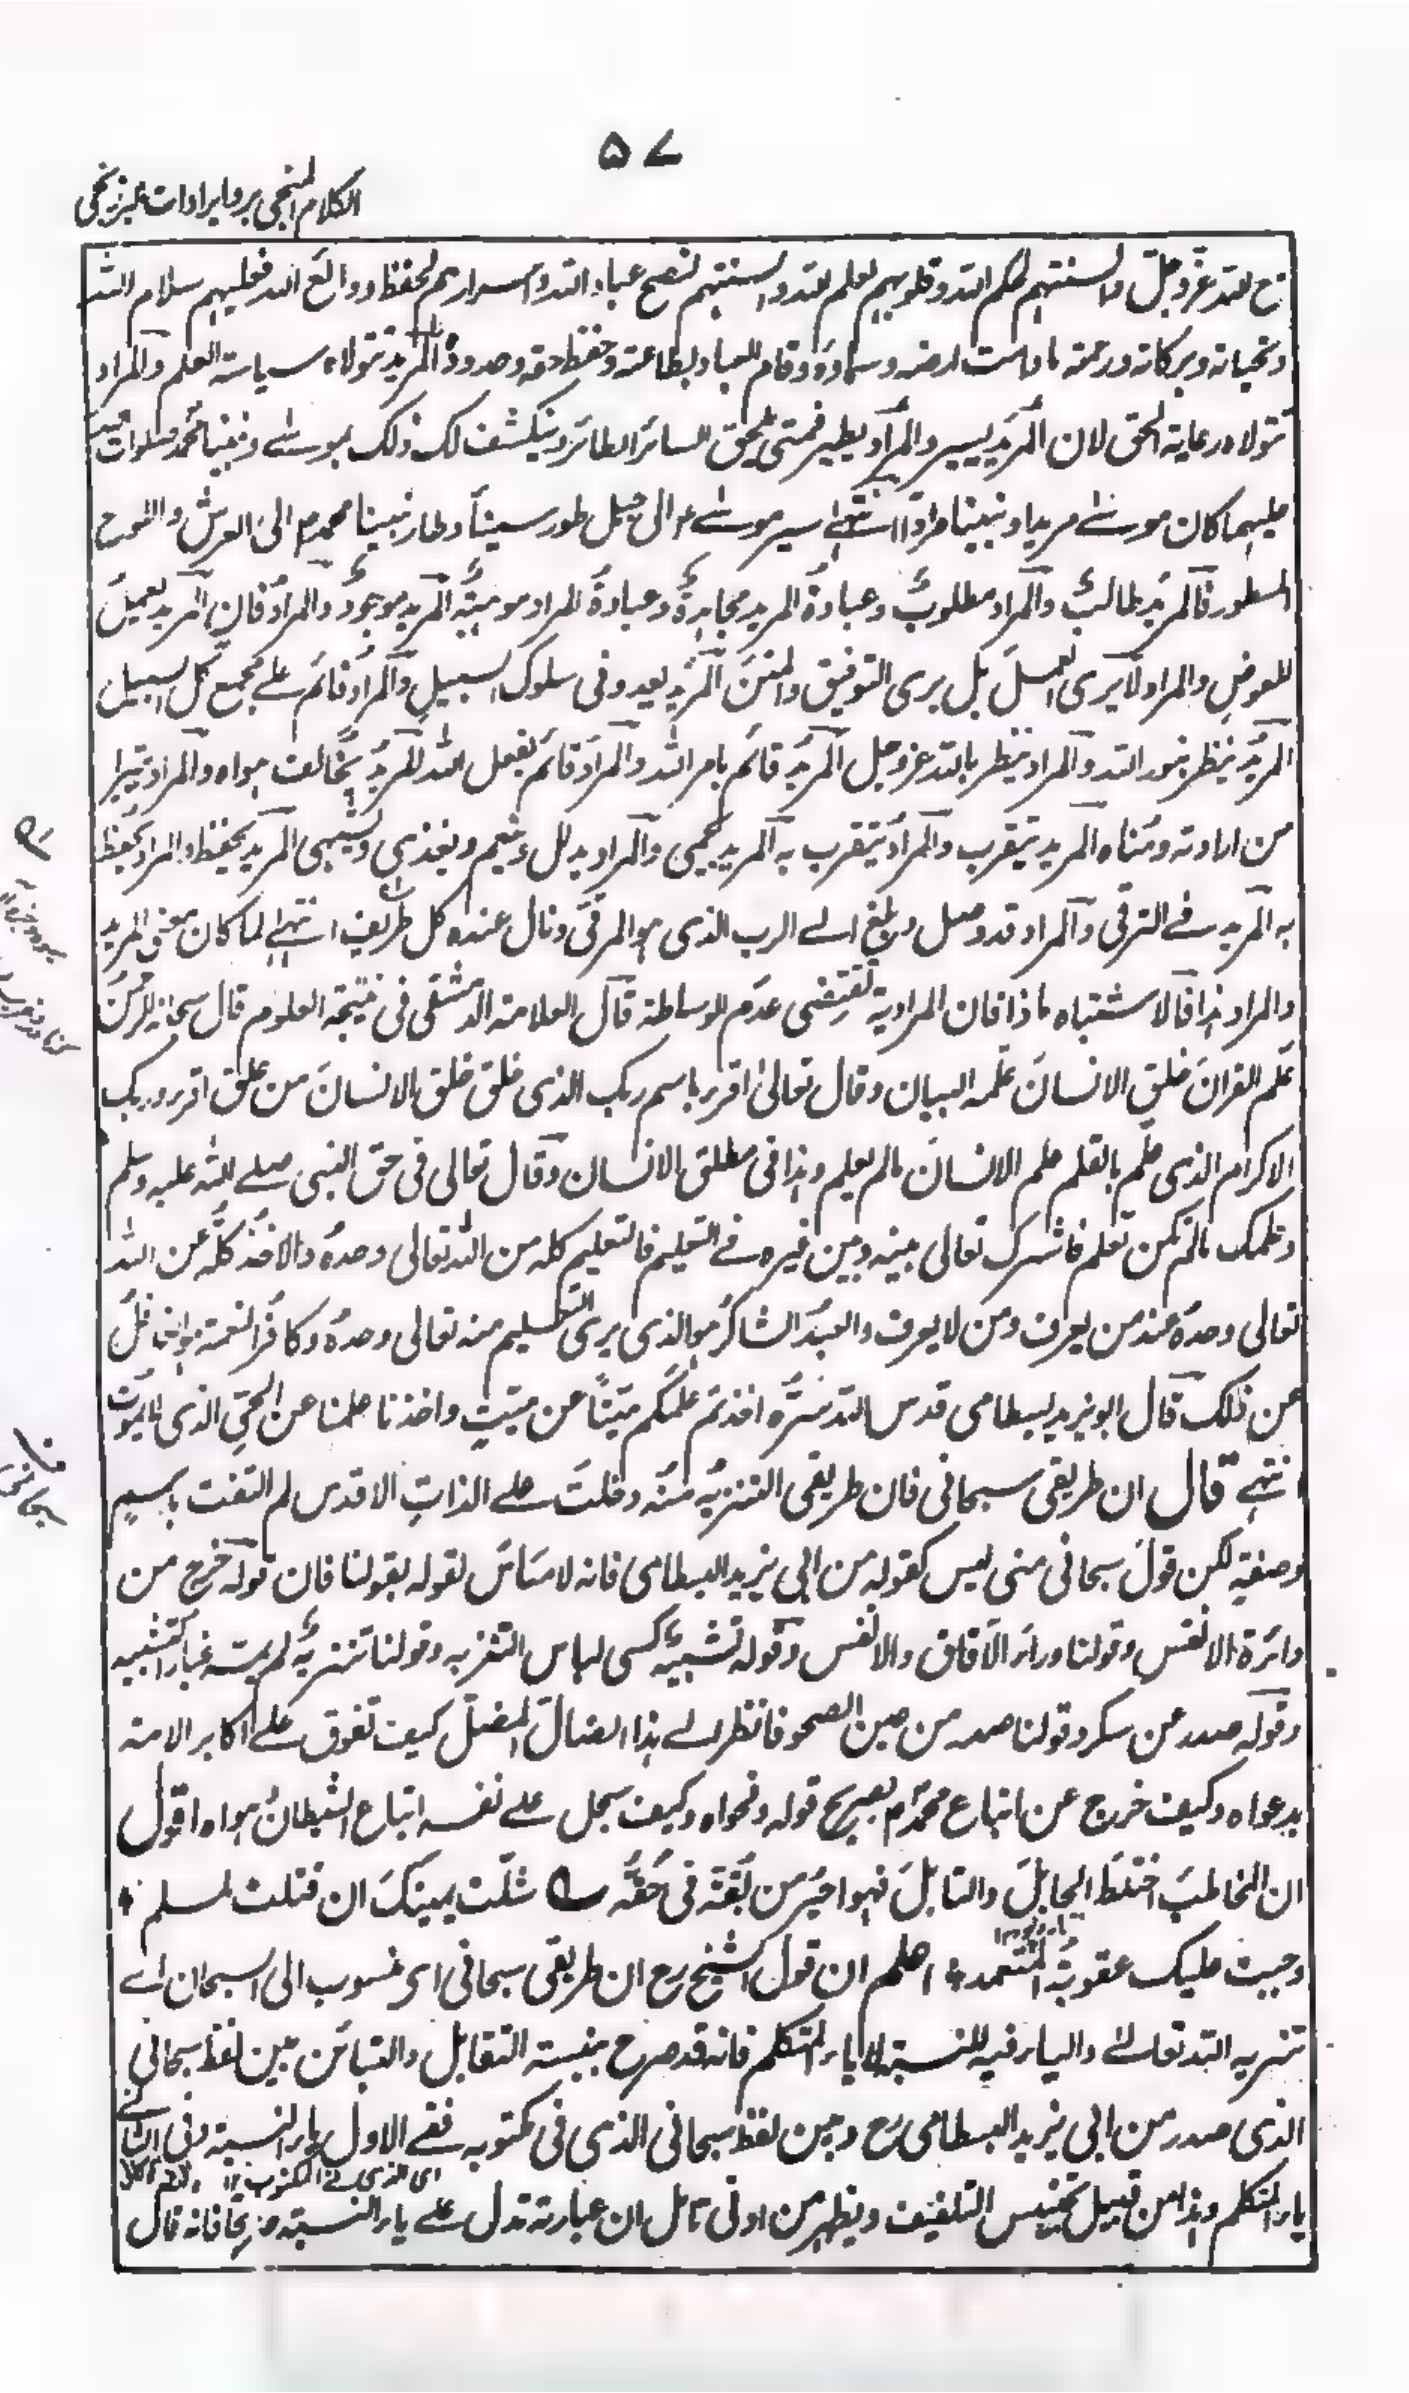 ۵۷
الکلام المنجی برد ایرادات البرزنجی
مع اللہ عز وجل والسنتہم بحکم اللہ وقلوبہم لعلم اللہ والسنتہم لنصح عباد اللہ واسرارہم لحفظ ودائع اللہ فعلیہم سلام اللہ
وتحیاتہ وبرکاتہ ورحمتہ مادامت ارضہ وسماؤہ وقام العباد بطاعتہ وحفظ حقہ وحدودہ المرید تتولاہ سیاستہ العلم والمراد
تتولاہ رعایۃ الحق لان المرید یسیر والمراد یطیر فمتی یلحق السائر الطائر وینکشف لک ذلک بموسیٰ ونبینا محمد صلوات اللہ
علیہما کان موسیٰ مریدا ونبینا مرادا انتہیٰ سیر موسیٰ ؑ الی جبل طور سیناء وطار نبینا محمد ؐ الی العرش واللوح
المسطور فالمرید طالبٌ والمراد مطلوبٌ وعبادۃ المرید مجاہدۃٌ وعبادۃ المراد موہبۃٌ المرید موجودٌ والمراد فانٍ المرید یعمل
للعوض والمراد لا یری العمل بل یری التوفیق والمنن المرید یعدو فی سلوک السبیل والمراد قائم علے مجمع کل السبیل
المرید ینظر بنور اللہ والمراد ینظر باللہ عز وجل المرید قائم بامر اللہ والمراد قائم بفعل اللہ المرید یخالف ہواہ والمراد یتبرا
من ارادتہ ومناہ المرید یتقرب والمراد یتقرب بہ المرید یحمی والمراد یدلل وینعم ویغذی ویشہی المرید یحفظ والمراد یحفظ
بہ المرید فے الترقی والمراد قد وصل وبلغ الے الرب الذی ہو المرقی ونال عندہ کل طریف انتہےٰ لما کان معنی المرید
والمراد ہذا فالاشتباہ ماذا فان المرادیۃ تقتضی عدم الوساطۃ قال العلامۃ الدمشقی فی نتیجۃ العلوم قال سبحانہ الرحمن
علم القران خلق الانسان علمہ البیان وقال تعالیٰ اقرء باسم ربک الذی خلق خلق الانسان من علق اقرء وربک
الاکرام الذی علم بالقلم علم الانسان مالم یعلم وہذا فی مطلق الانسان وقال تعالی فی حق النبی صلے اللہ علیہ وسلم
وعلمک مالم تکن تعلم فاشرک تعالی بینہ وبین غیرہ فے التعلیم فالتعلیم کلہ من اللہ تعالی وحدہ والاخذ کلہ عن اللہ
تعالی وحدہ عند من یعرف ومن لا یعرف والعبد الشاکر ہو الذی یری التعلیم منہ تعالی وحدہ وکافر النعمۃ ہو الغافل
عن ذلک قال ابو یزید بسطامی قدس اللہ سرہ اخذتم علمکم میتًا عن میّتٍ واخذنا علمنا عن الحی الذی لایموت
انتہے قال ان طریقی سبحانی فان طریقی التنزیہ منہ دخلت علے الذات الاقدس لم التفت باسمٍ
وصفۃٍ لکن قول سبحانی منی لیس کقولہ من ابی یزید البسطامی فانہ لامساس لقولہ بقولنا فان قولہ خرج من
دائرۃ الانفس وقولنا وراء الآفاق والانفس وقولہ تشبیہٌ کسی لباس التنزیہ وقولنا تنزیہٌ لم یمسہ غبار التشبیہ
وقولہ صدر عن سکر وقولنا صدر من عین الصحو فانظر الے ہذا الضال المضل کیف تفوق علے اکابر الامۃ
بدعواہ وکیف خرج عن اتباع محمد ؐ بصریح قولہ وفحواہ وکیف سجل علے نفسہ اتباع الشیطان ہواہ اقول
ان المخاطب اختلط الحابل والنابل فہو احیر من بقۃ فی حقّہ ؎ شلّت یمینک ان قتلت لمسلم *
وجبت علیک عقوبۃ المتعمد * اعلم ان قول الشیخ رح ان طریقی سبحانی ای منسوب الی السبحان اے
تنزیہ اللہ تعالےٰ والیاء فیہ للنسبۃ لا یاء المتکلم فانہ قد صرح بنسبۃ التقابل والتبائن بین لفظ سبحانی
الذی صدر من ابی یزید البسطامی رح وبین لفظ سبحانی الذی فی مکتوبہ ففے الاول یاء النسبۃ وفی الثانے
ای الذی فے المکتوب ۱۲
یاء المتکلم وہذا من قبیل تجنیس التلفیف ویظہر من ادنی تامل ان عبارتہ تدل علے یاء النسبۃ صریحا فانہ قال